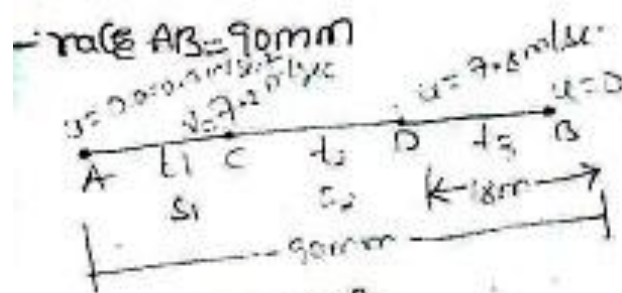 race AB=90mm
u=0
v=7.2m/sec
u=7.8m/sec
u=0
A t1 C t2 D t3 B
S1 S2 18m
90mm